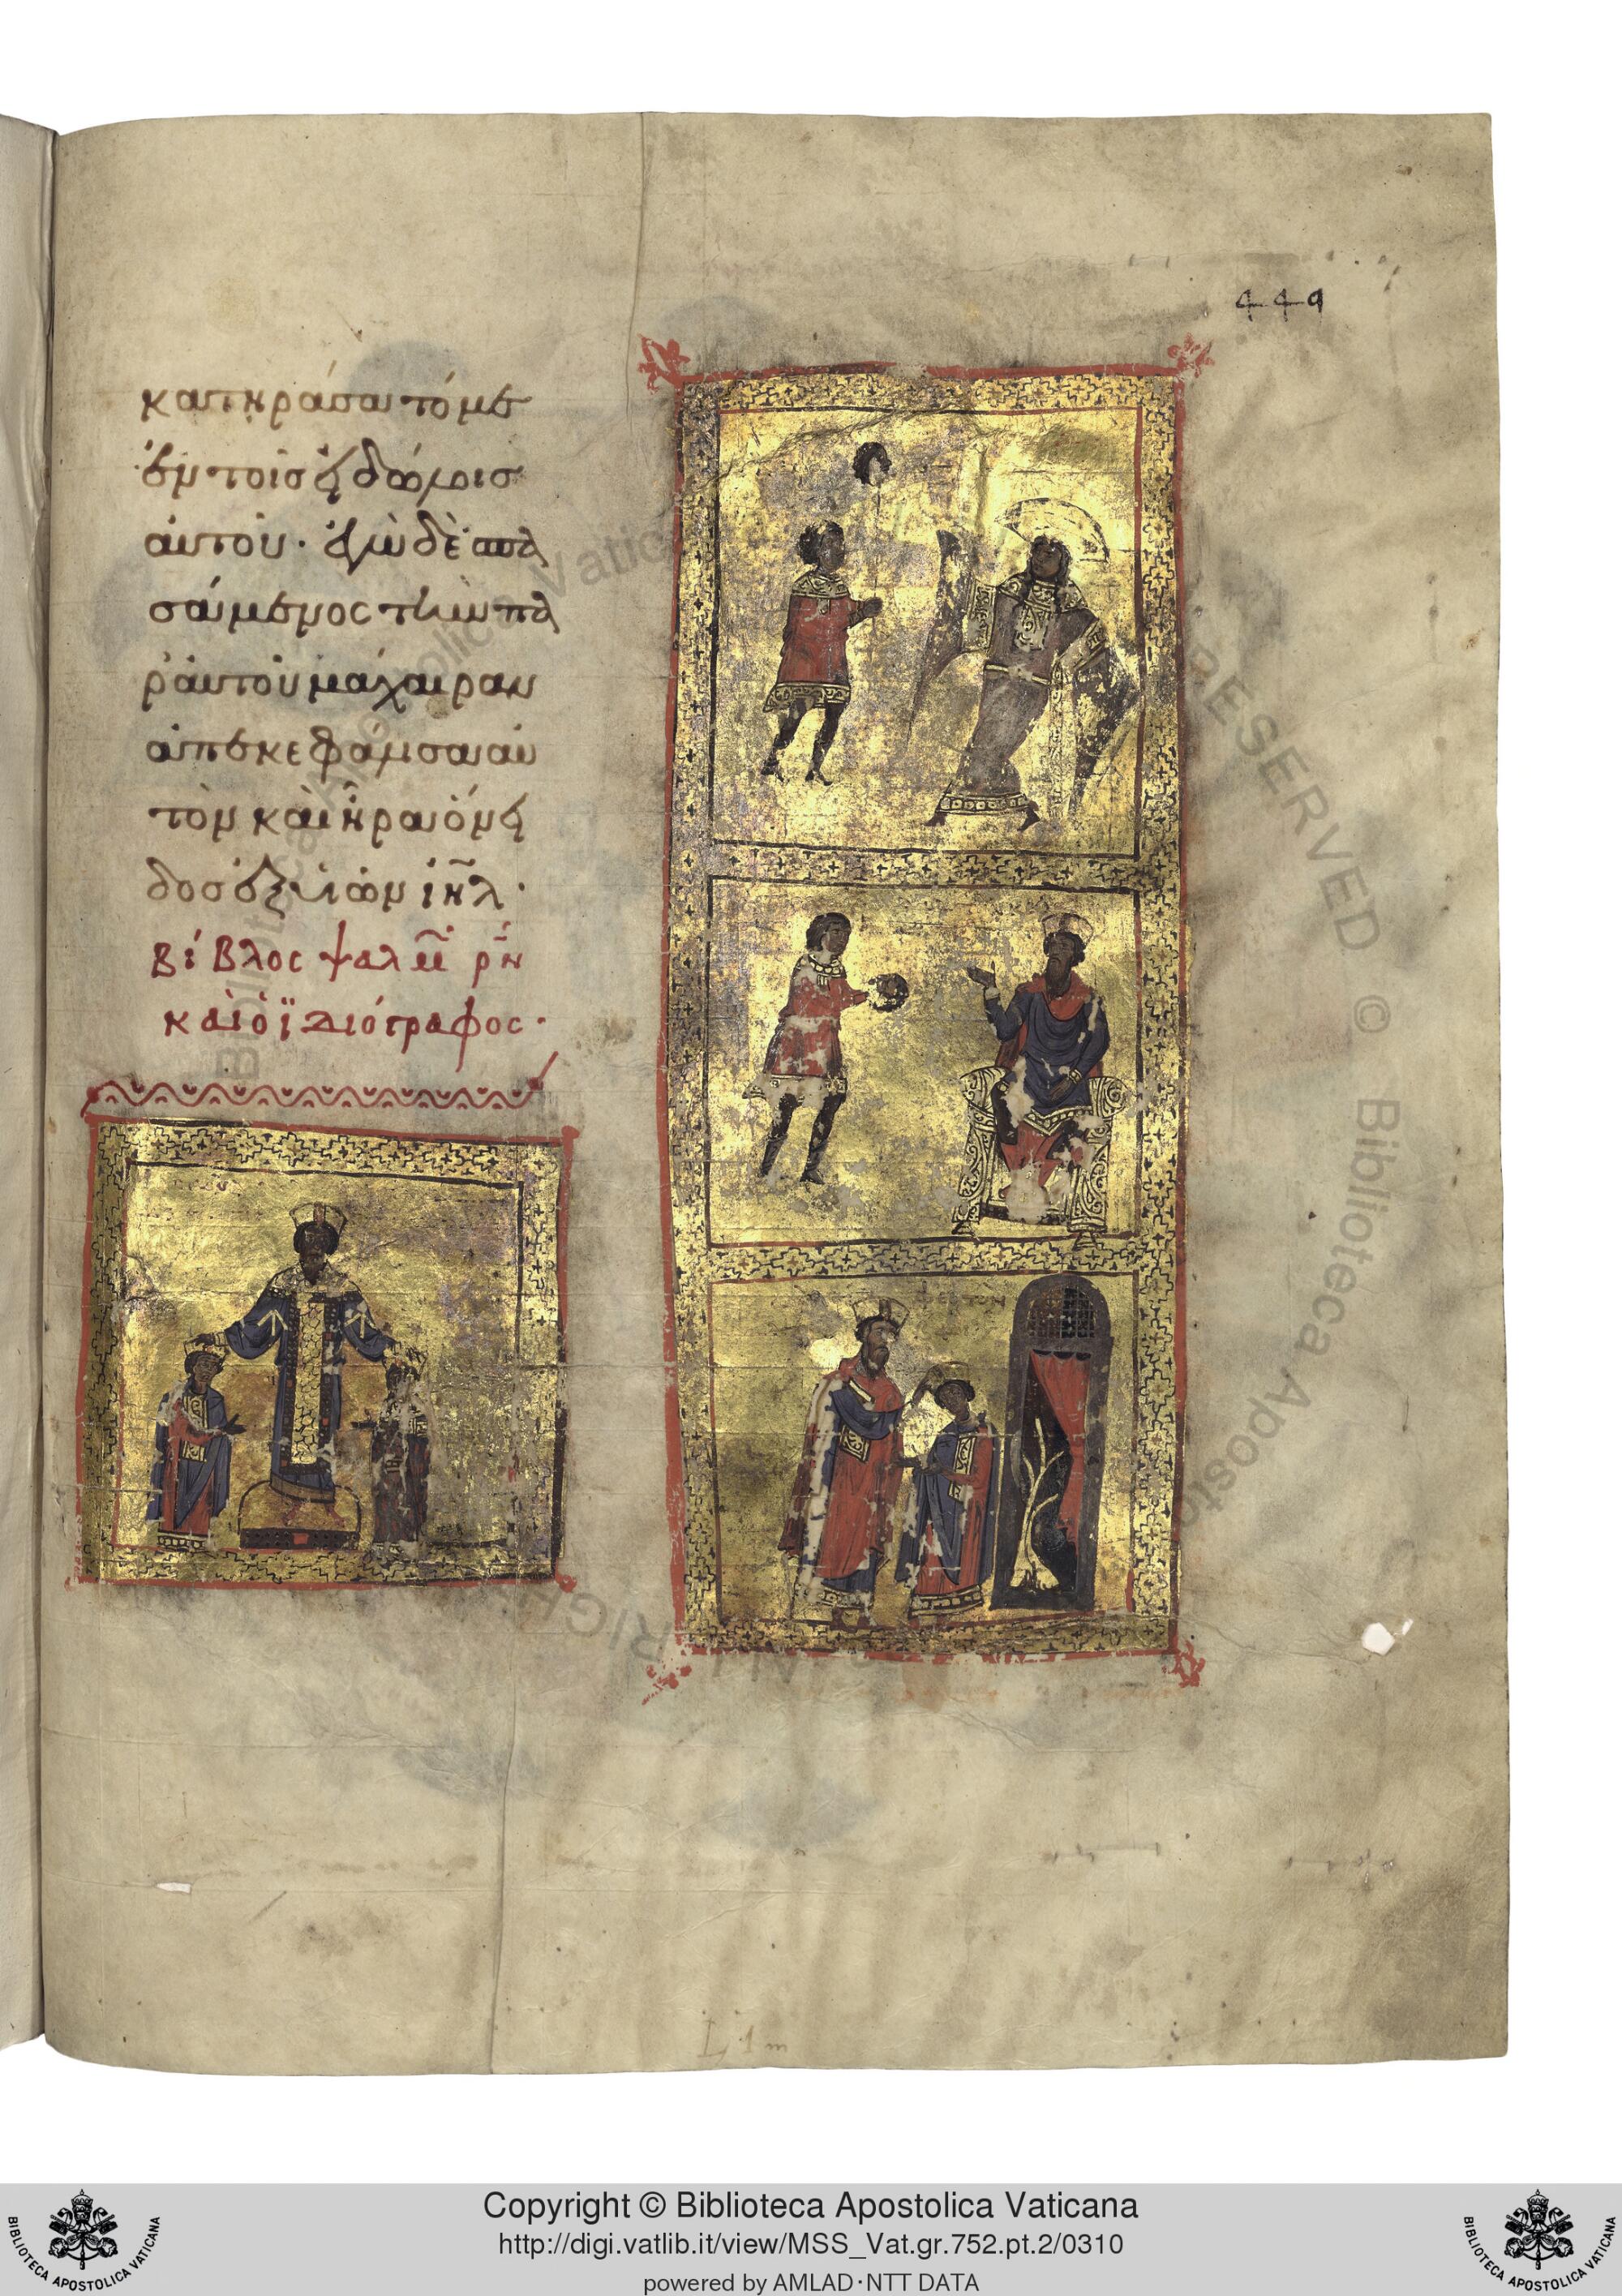 449
κατηράσατό με
ἐν τοῖς εἰδώλοις
αὐτοῦ· ἐγὼ δὲ σπα
σάμενος τὴν πα
ρ' αὐτοῦ μάχαιραν
ἀπεκεφάλισα αὐ
τὸν καὶ ἦρα ὄνει
δος ἐξ υἱῶν ιηλ·
βίβλος ψαλμ ρν
καὶ ὁ ϊδιόγραφος·
Copyright © Biblioteca Apostolica Vaticana
http://digi.vatlib.it/view/MSS_Vat.gr.752.pt.2/0310
powered by AMLAD·NTT DATA
BIBLIOTECA APOSTOLICA VATICANA
BIBLIOTECA APOSTOLICA VATICANA